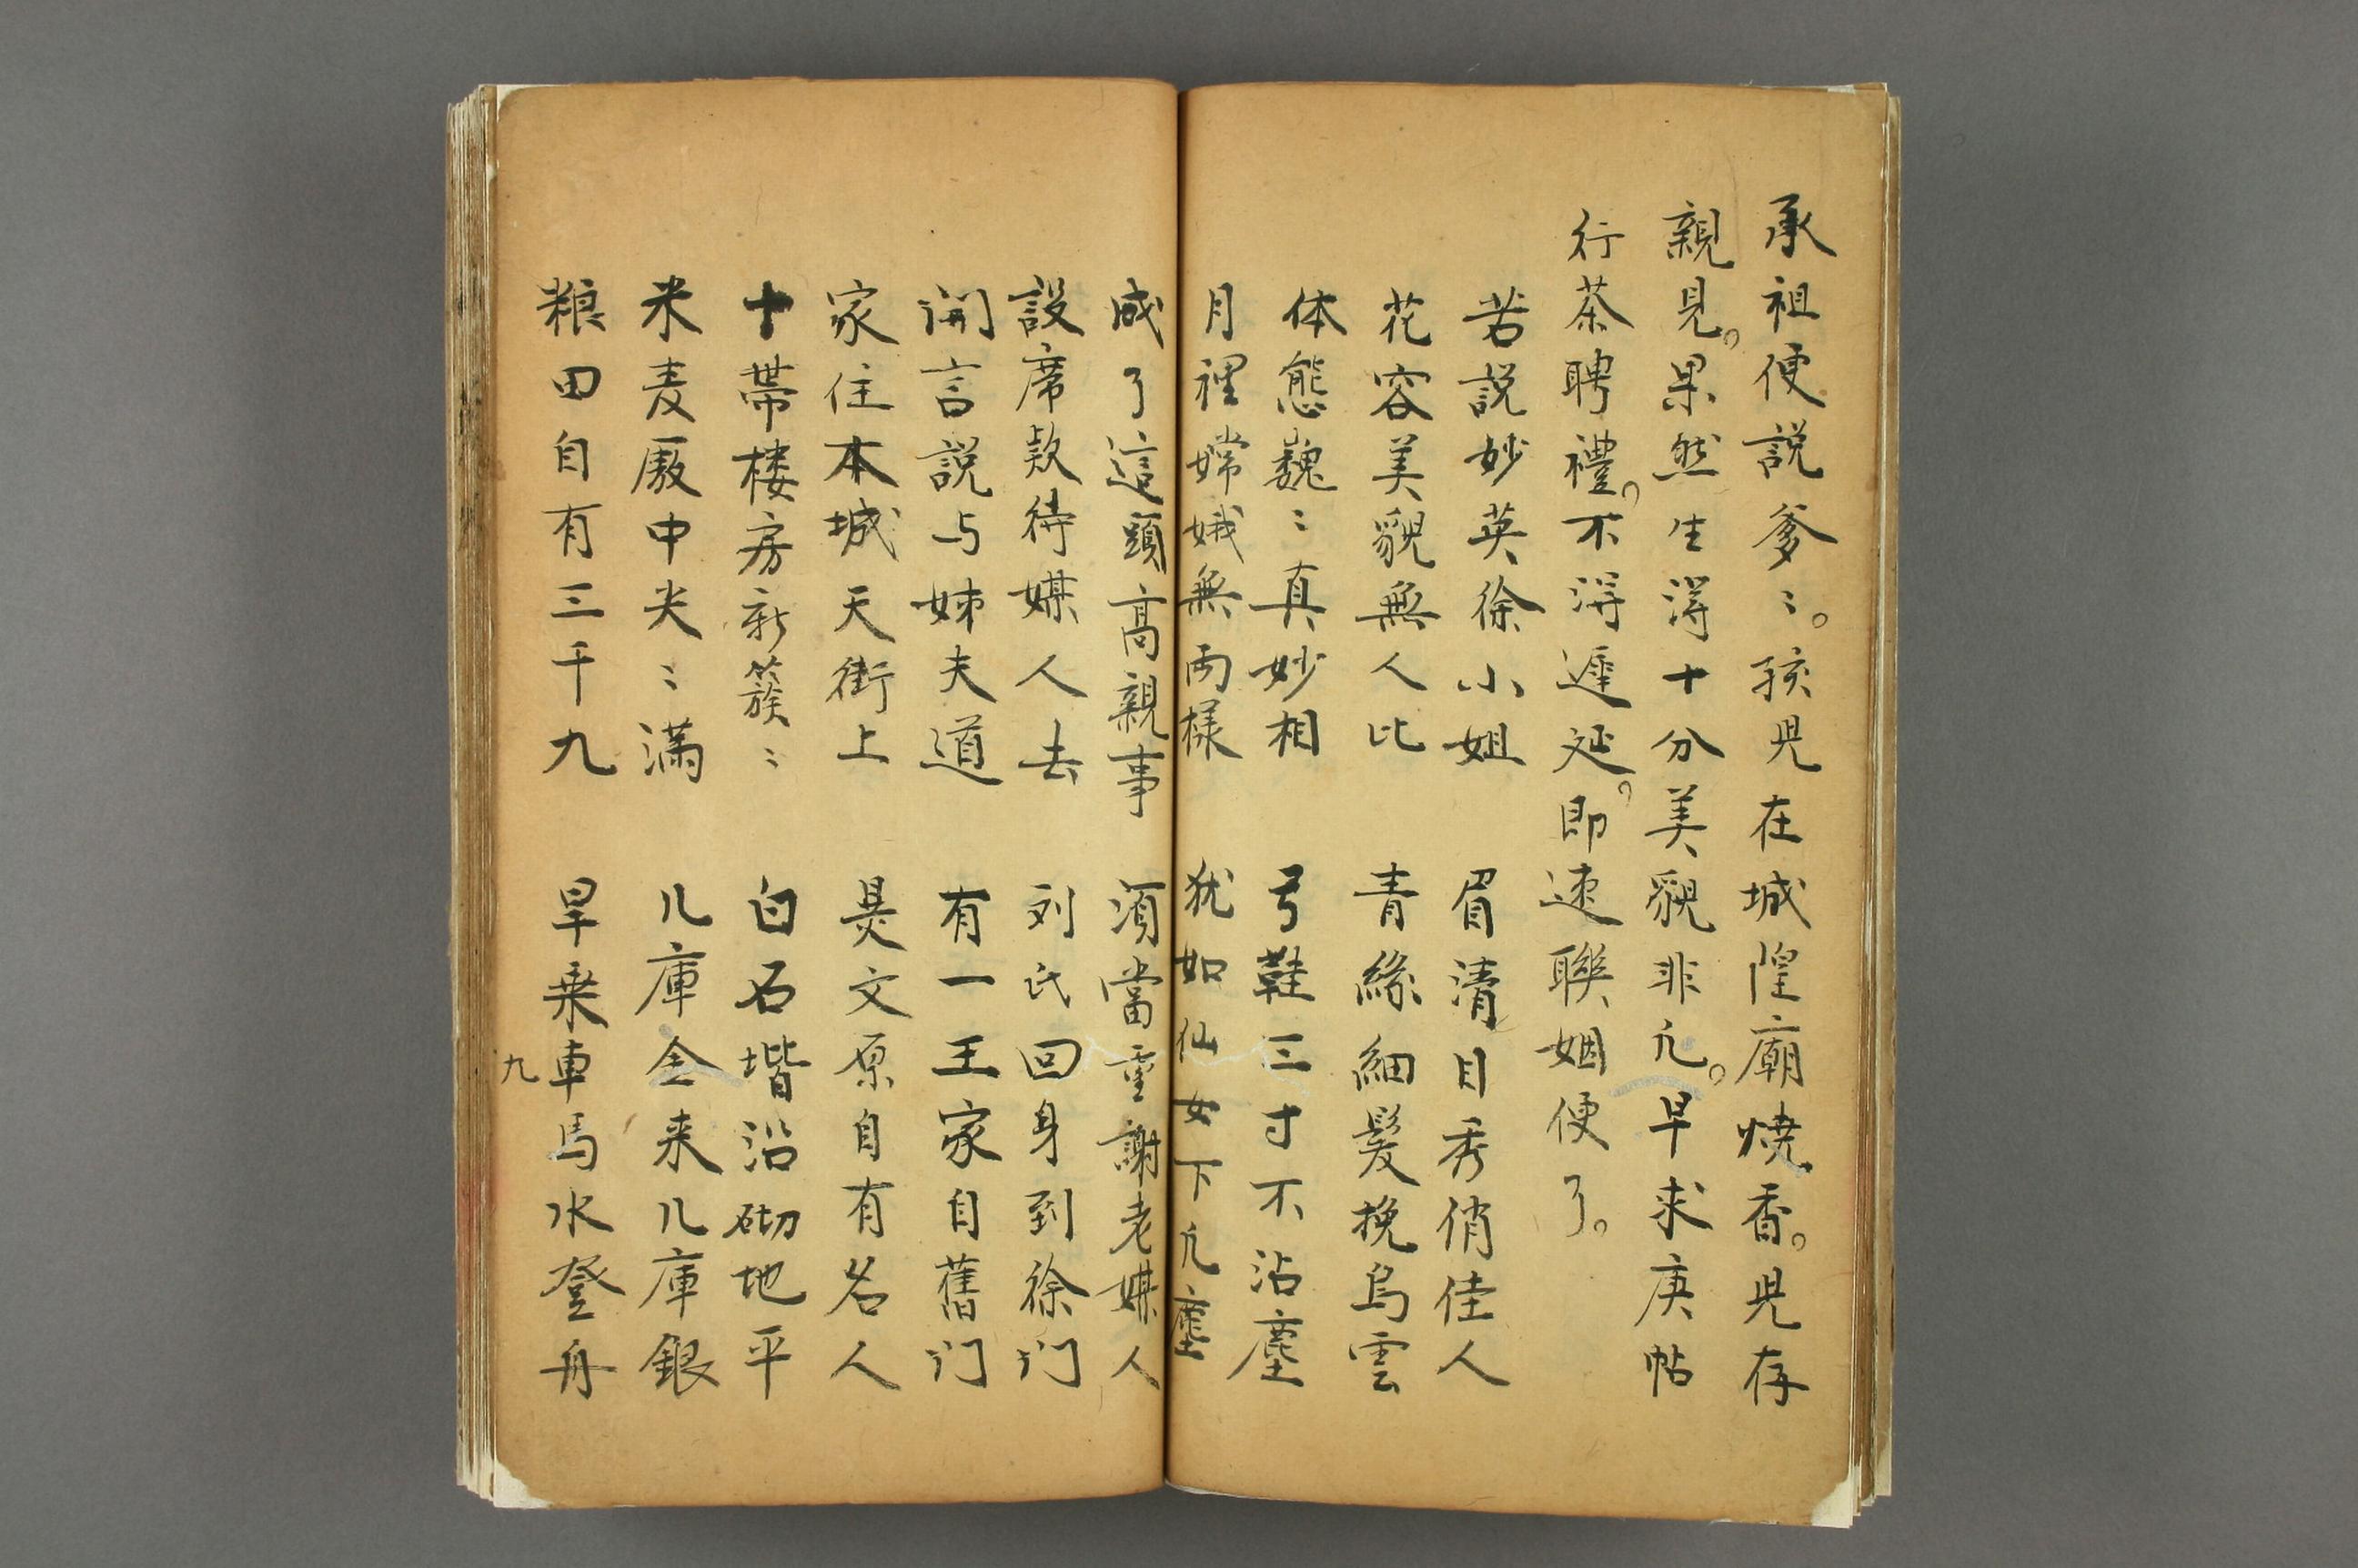 承祖便説爹〻。孩児在城隍廟焼香。児存
親見。果然生得十分美貌非凢。早求庚帖
行茶聘禮。不得遲延。即速聯姻便了。
若説妙英徐小姐　眉清目秀俏佳人
花容美貌無人比　青絲細髮挽烏雲
体態巍〻真妙相　弓鞋三寸不沾塵
月裡嫦娥無両樣　犹如仙女下凢塵
成了這頭髙親事　須當重謝老媒人
設席欵待媒人去　刘氏回身到徐门
開言説与姊夫道　有一王家自舊门
家住本城天街上　是文原自有名人
十帶楼房新簇〻　白石堦沿砌地平
米麦厫中尖〻满　几庫金来几庫銀
粮田自有三千九　旱乗車馬水登舟
九